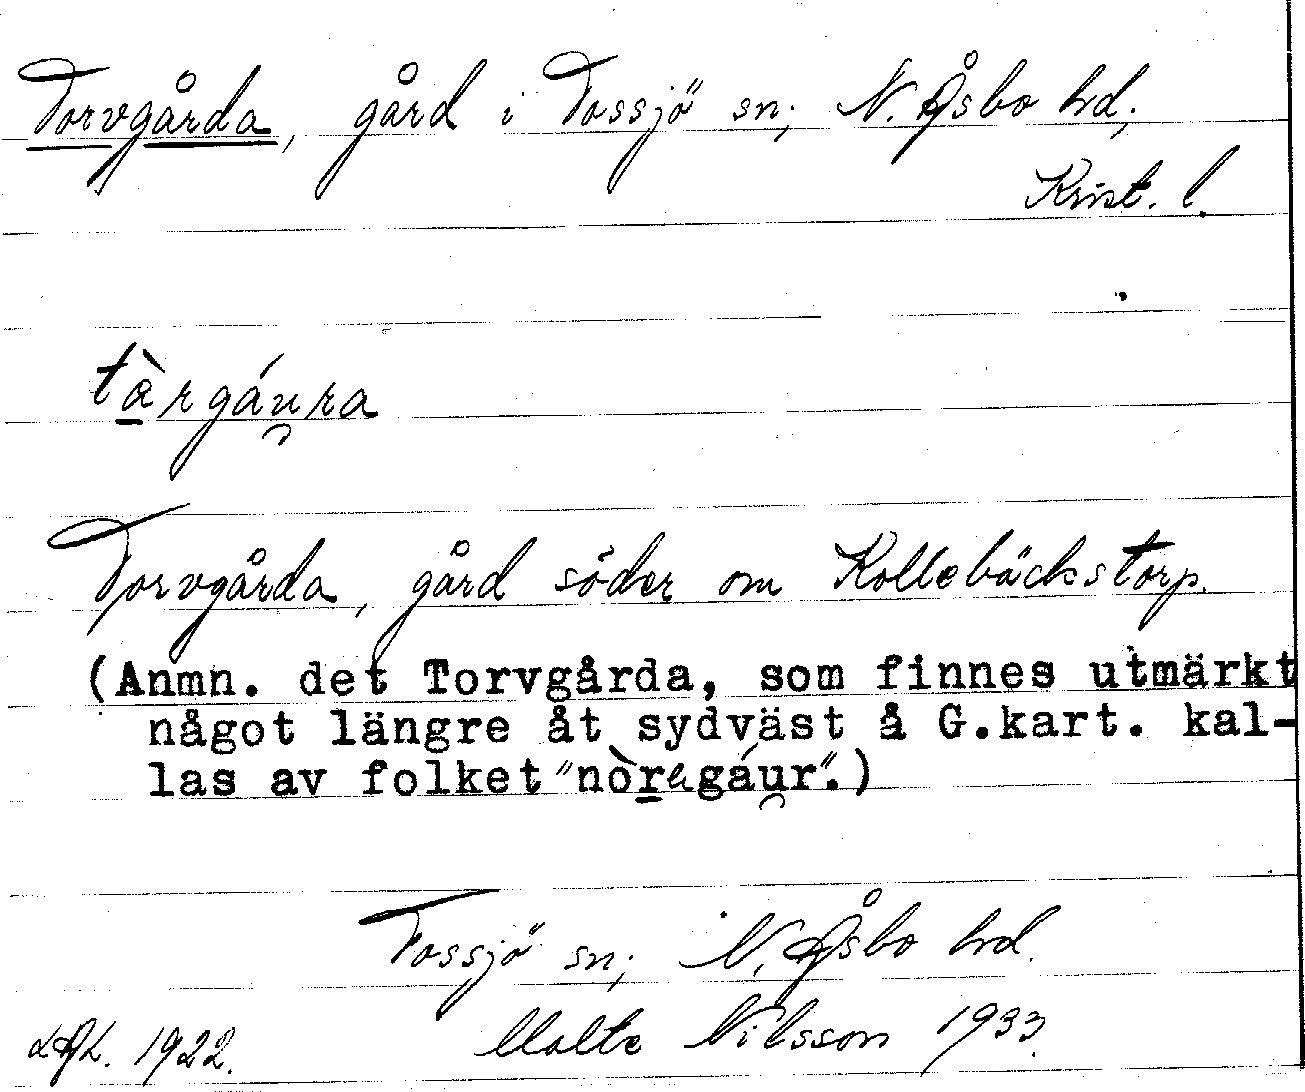 Torvgårda, gård i Tossjö sn; N. Åsbo hd;
Krist. l.
tàrgáu̯ra
Torvgårda, gård söder om Kollebäckstorp.
(Anmn. det Torvgårda, som finnes utmärkt
något längre åt sydväst å G.kart. kal-
las av folket "nòragáu̯r".)
Tossjö sn; N. Åsbo hd.
Malte Nilsson 1933.
LAL. 1922.